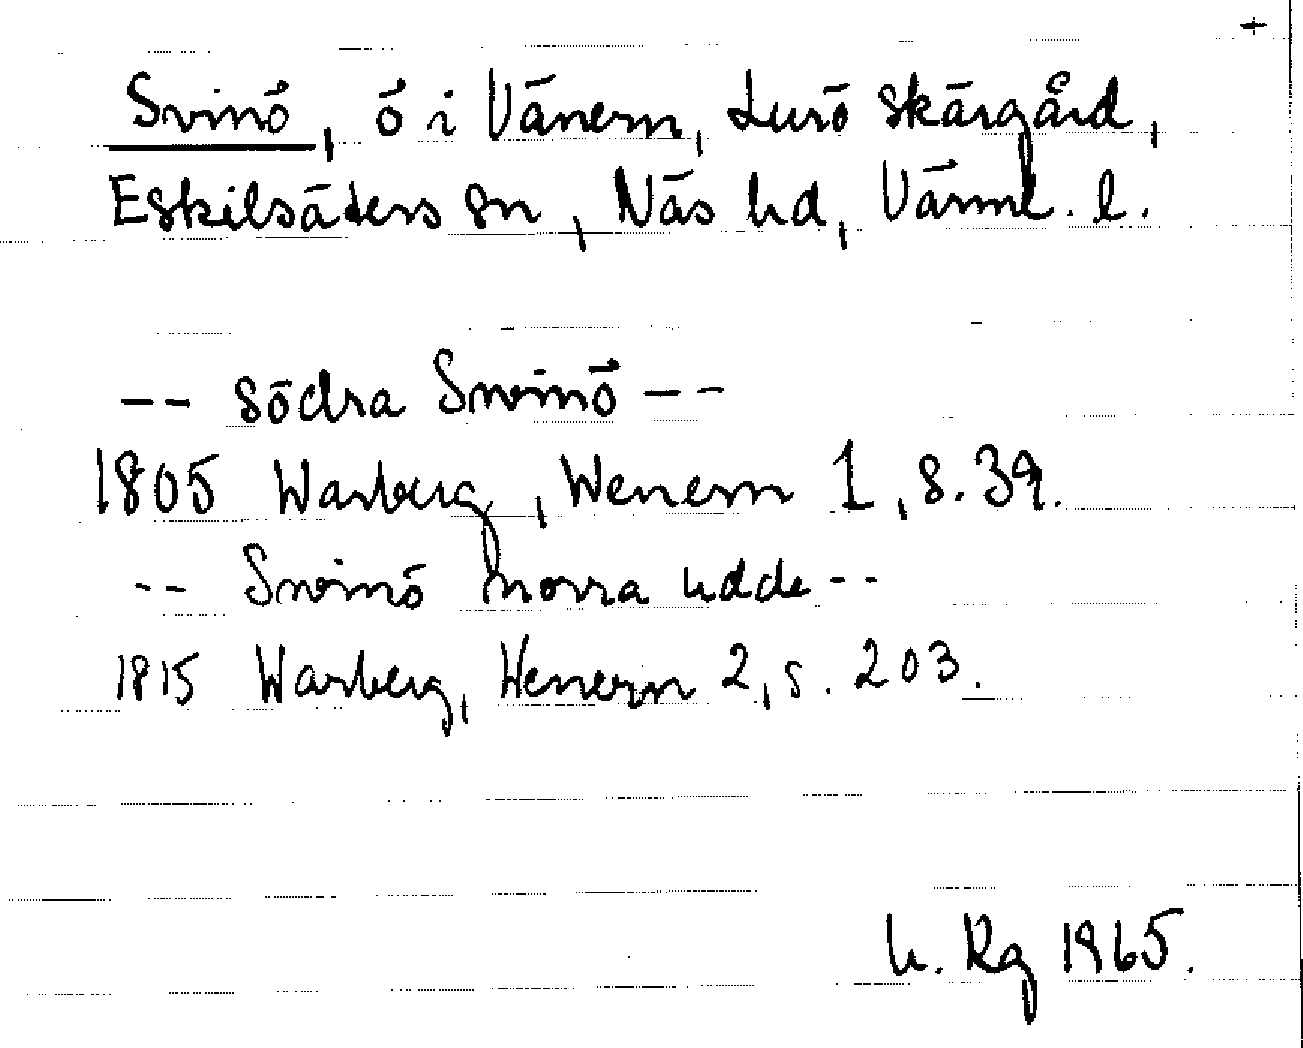 +
Svinö, ö i Vänern, Lurö skärgård,
Eskilsäters sn, Näs hd, Värml. l.
-- södra Swinö --
1805 Warberg, Wenern 1, s. 39.
-- Swinö norra udde --
1815 Warberg, Wenern 2, s. 203.
h. Rg 1965.